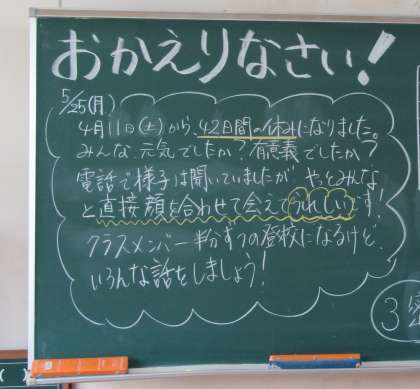 おかえりなさい！
5/25(月)
4月11日(土)から、42日間の休みになりました。
みんな、元気でしたか？有意義でしたか？
電話で様子は聞いていましたが やっとみんな
と直接顔を合わせて会えてうれしいです！
クラスメンバー半分ずつの登校になるけど、
いろんな話をしましょう！
3